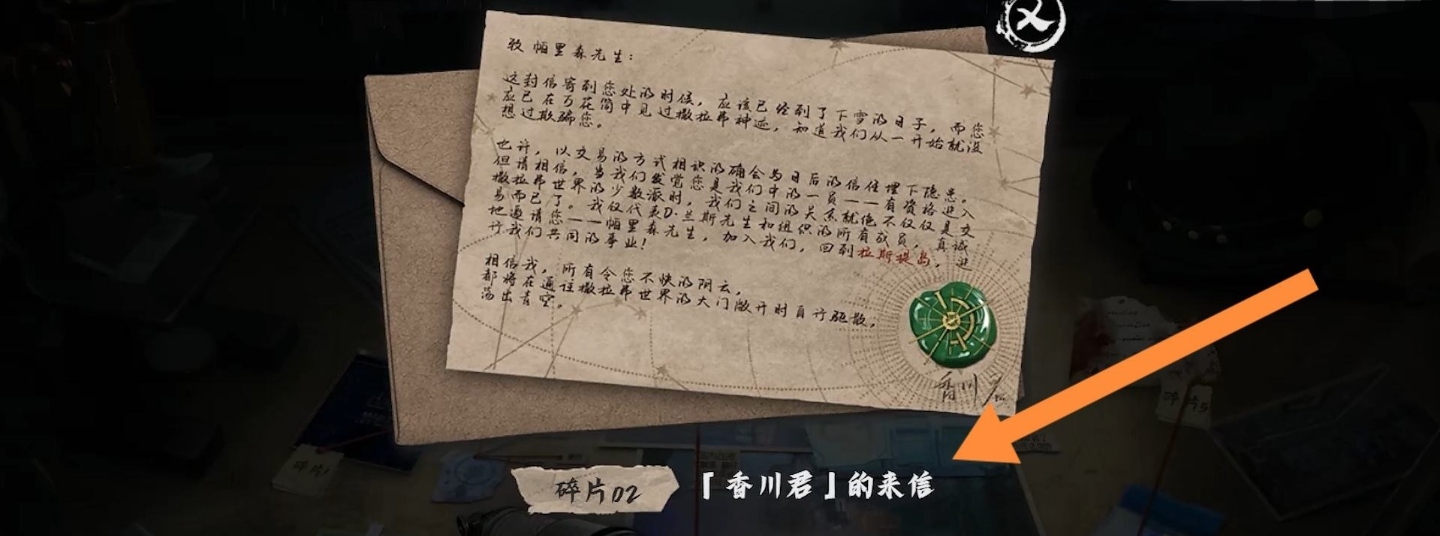 致 帕里森先生：
这封信寄到您处的时候，应该已经到了下雪的日子，而您
应已在万花筒中见过撒拉弗神迹，知道我们从一开始就没
想过欺骗您。
也许，以交易的方式相识的确会为日后的信任埋下隐患。
但请相信，当我们发觉您是我们中的一员——有资格进入
撒拉弗世界的少数派时，我们之间的关系就绝不仅仅是交
易而已了。我仅代表D·兰斯先生和组织的所有成员，真诚
地邀请您——帕里森先生，加入我们，回到拉斯提岛，进
行我们共同的事业！
相信我，所有令您不快的阴云，
都将在通往撒拉弗世界的大门敞开时自行驱散，
荡出青空。
香川君
碎片5
碎片1
碎片02
「香川君」的来信